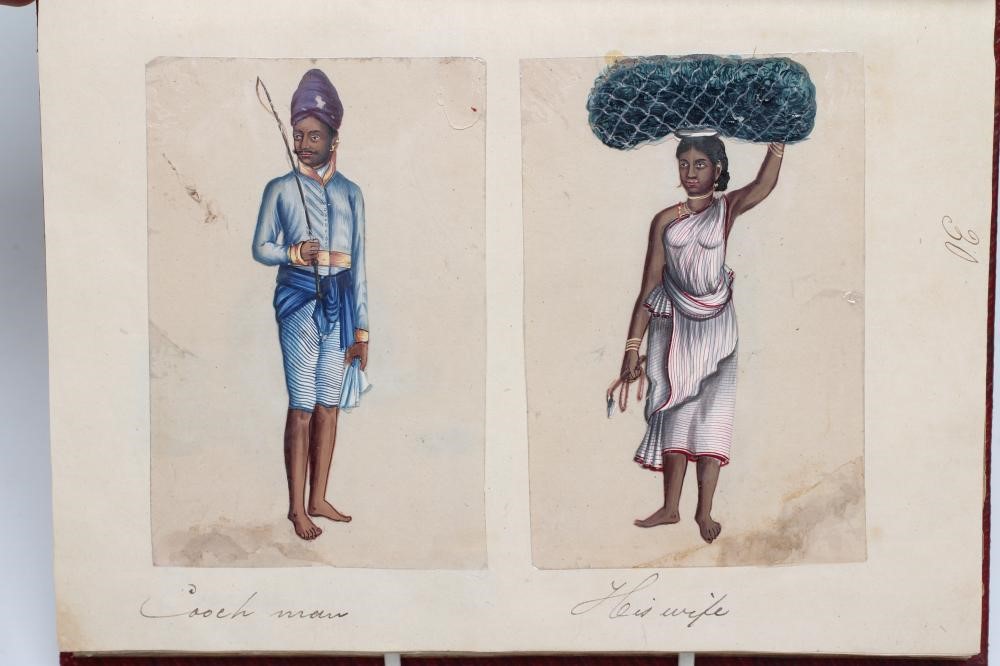 Cooch man
His wife
30